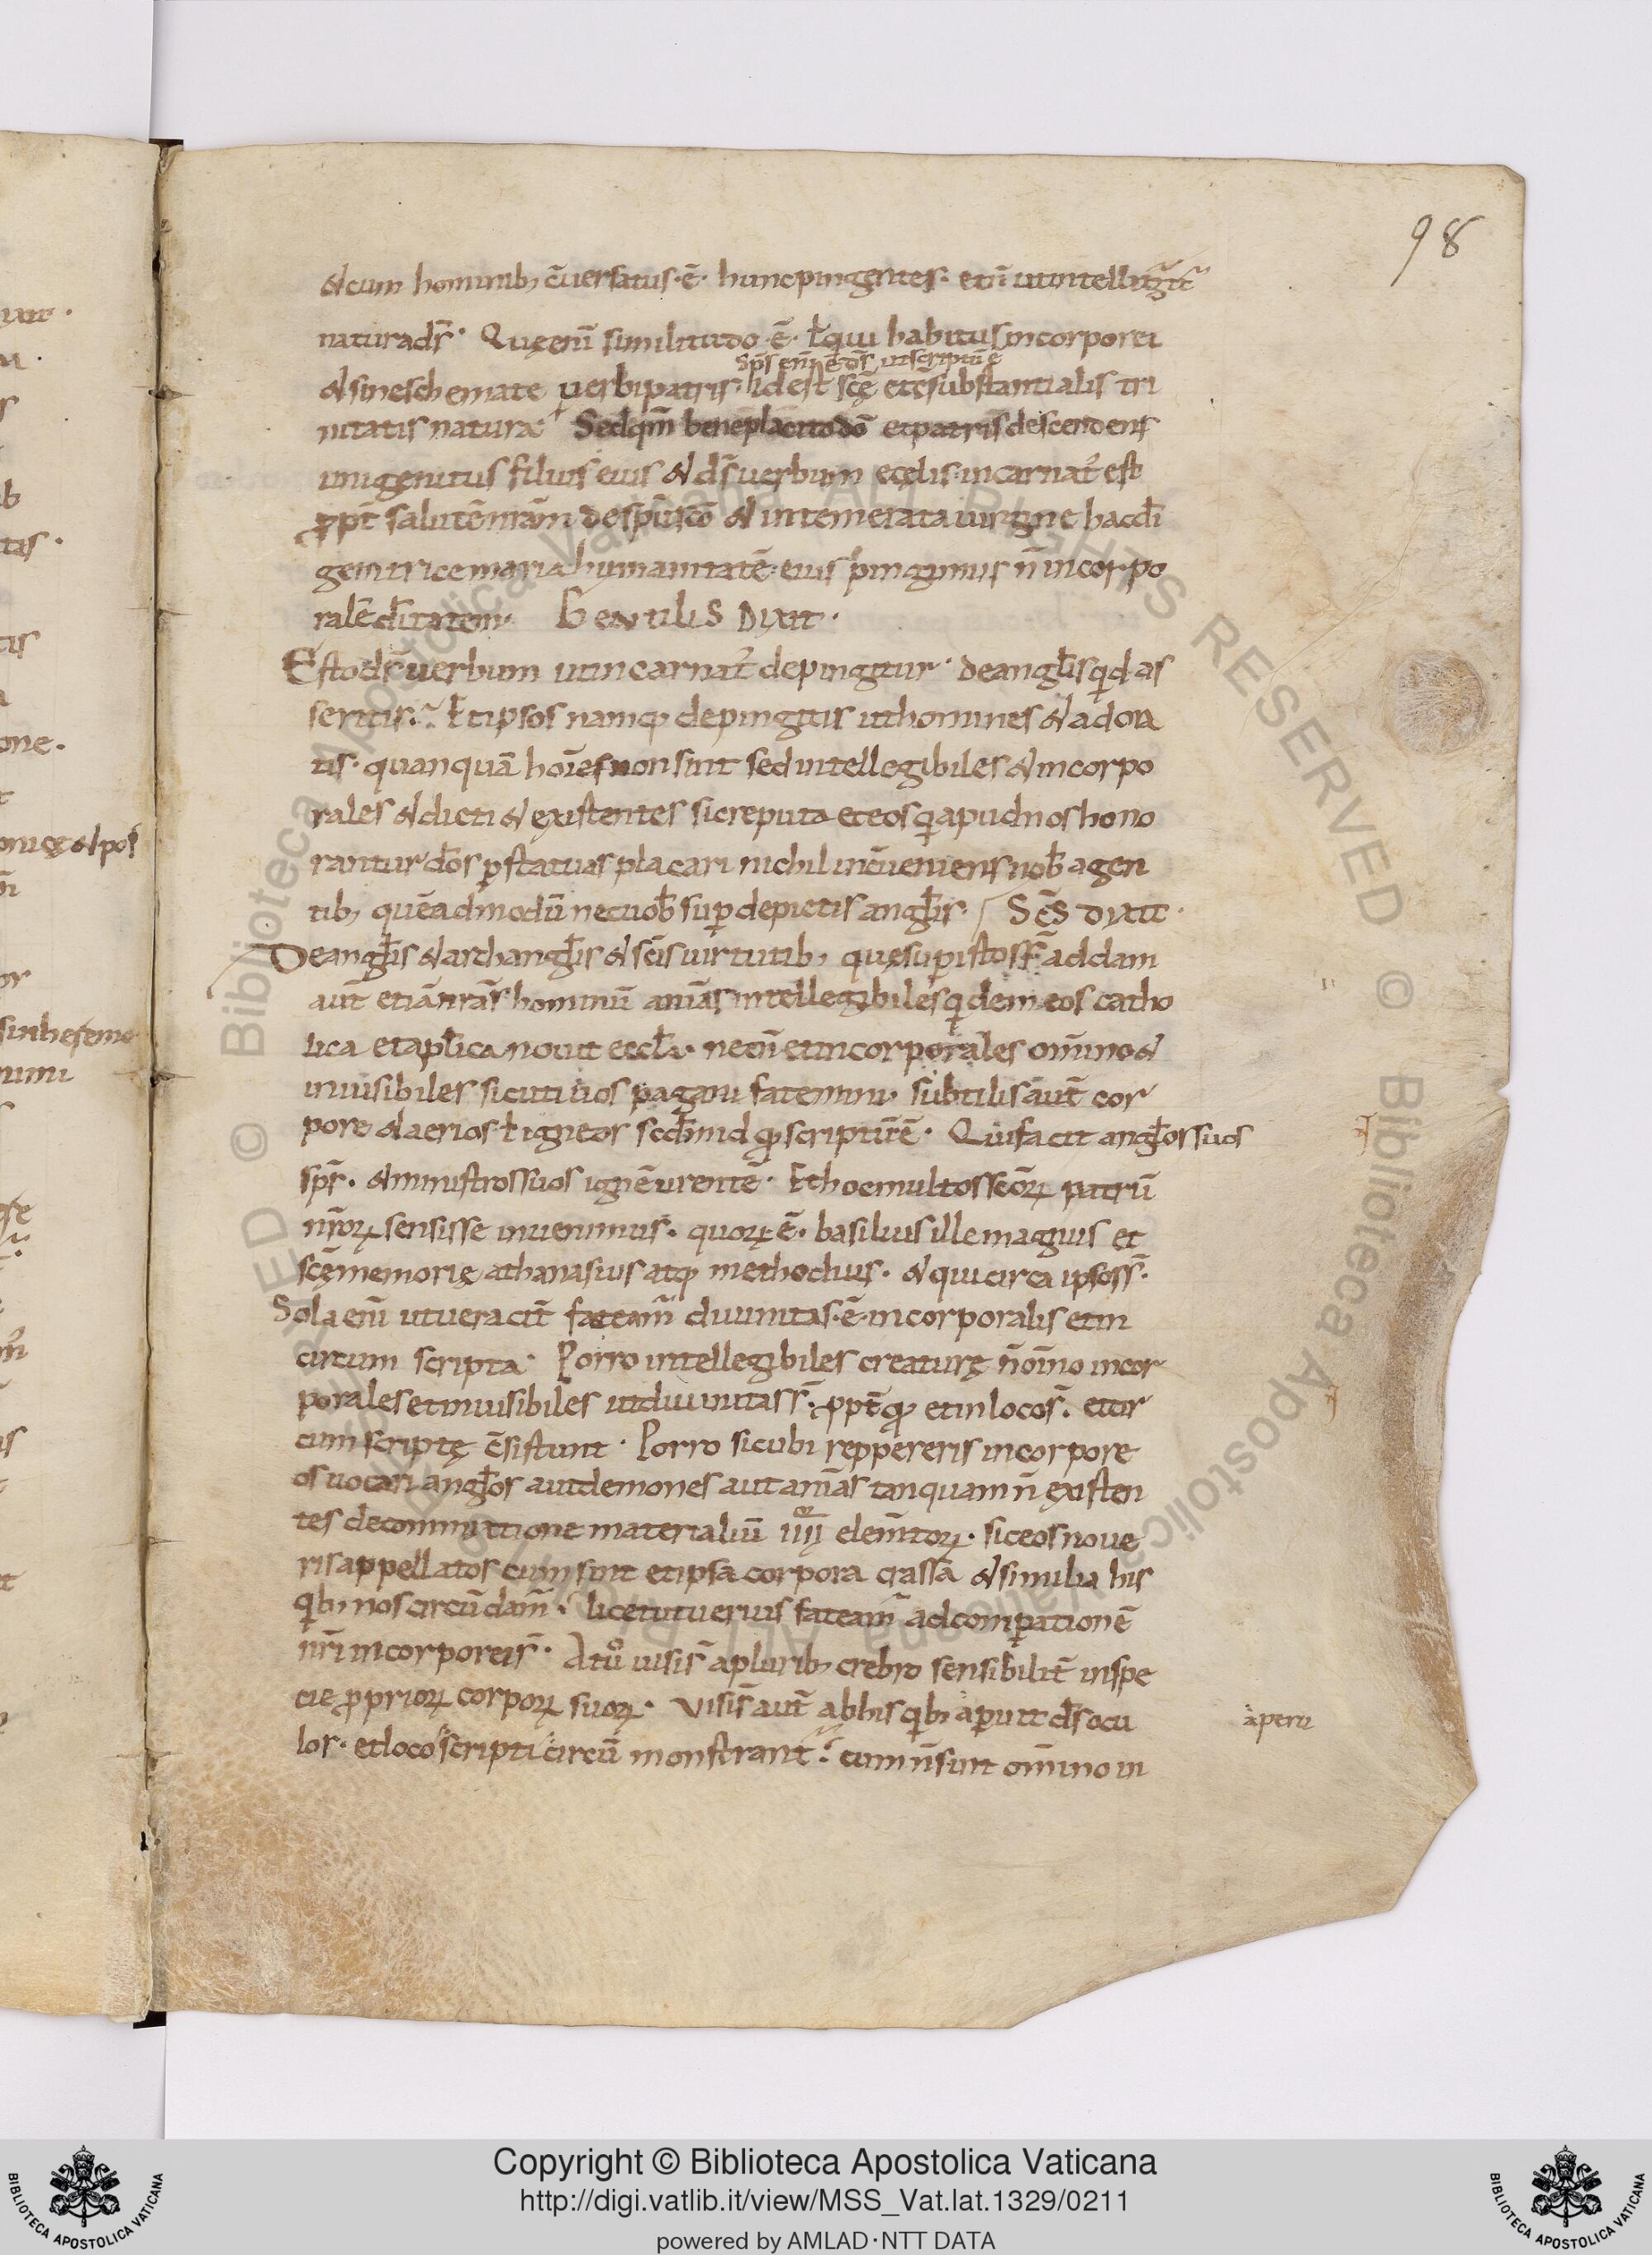 98
& cum hominib; c̄uersatus·ē· hunc pingentes· et n̄ ut intellegit᷑
natura dī· Quę enī similitudo·ē· ł qui habitus incorporei
sp̄s enī ē ds̄ ut scriptū ē
& sine schemate uerbi patris· id est scę̄ et c̄substantialis tri
nitatis natura Sed qm̄ beneplacito dō et patris descendens
unigenitus filius eius & ds̄ uerbum e cęlis· incarnat᷒ est
ꝓpt̄ salutē nrām de spū scō & intemerata uirgine hac dī
genitrice maria humanitatē eius pingimus n̄ incorpo
ralē ditatem· GENTILIS DIXIT·
Esto ds̄ uerbum ut incarnat᷒ depingitur· de angłis qd as
seritis· Et ipsos namq; depingitis ut homines & adora
tis· quanquā hoīes non sint sed intellegibiles & incorpo
rales & dicti & existentes sic reputa et eos q apud nos hono
rantur dōs ꝑ statuas placari nichil inc̄ueniens nob agen
tib; quēadmodū nec uob̄ sup depictis angłis· SC̄S DIXIT·
De angłis & archangłis & scīs uirtutib; quę sup istos s̄ addam
aut̄ etiā nrās hominū animas intellegibiles qdem eos catho
lica et apłica nouit eccła· ne oīn et incorporales omīno &
inuisibiles sicuti uos pagani fatemini· subtilis aut̄ cor
pore & aerios ł igneos scdm id qd scriptū ē· Qui facit angłos suos
sps̄· & ministros suos ignē urentē· Et hoc multos scōrꝝ patrū
nrōrꝝ sensisse inuenimus· quorꝝ ē· basilius ille magnus et
scę̄ memorię athanasius atq; methodius· & qui circa ipsos s̄·
Sola enī ut ueracit̄ fateam̄ diuinitas·ē· incorporalis et in
circum scripta· Porro intellegibiles creaturę n̄ omīno incor
porales et inuisibiles ut diuinitas s̄· ꝓpt̄ qd et in loco s̄· et cir
cum scriptę c̄sistunt· Porro sicubi reppereris incorpore
os uocari angłos aut demones aut animas tanquam n̄ existen
tes de commixtione materialiū iiii elem̄torꝝ· sic eos noue
ris appellatos cum sint et ipsa corpora crassa & similia his
qb; nos circūdam̄· licet ut uerius fateam̄ ad comparationē
nrī incorporei s̄· At uō uisi s̄ a plurib; crebro sensibilit̄ in spe
cie ꝓpriorꝝ corporꝝ suorꝝ· Visi s̄ aut̄ ab his qb; aperuit ds̄ ocu
aperu
los· et loco scripti circū monstrant᷑· cum n̄ sint omīno in